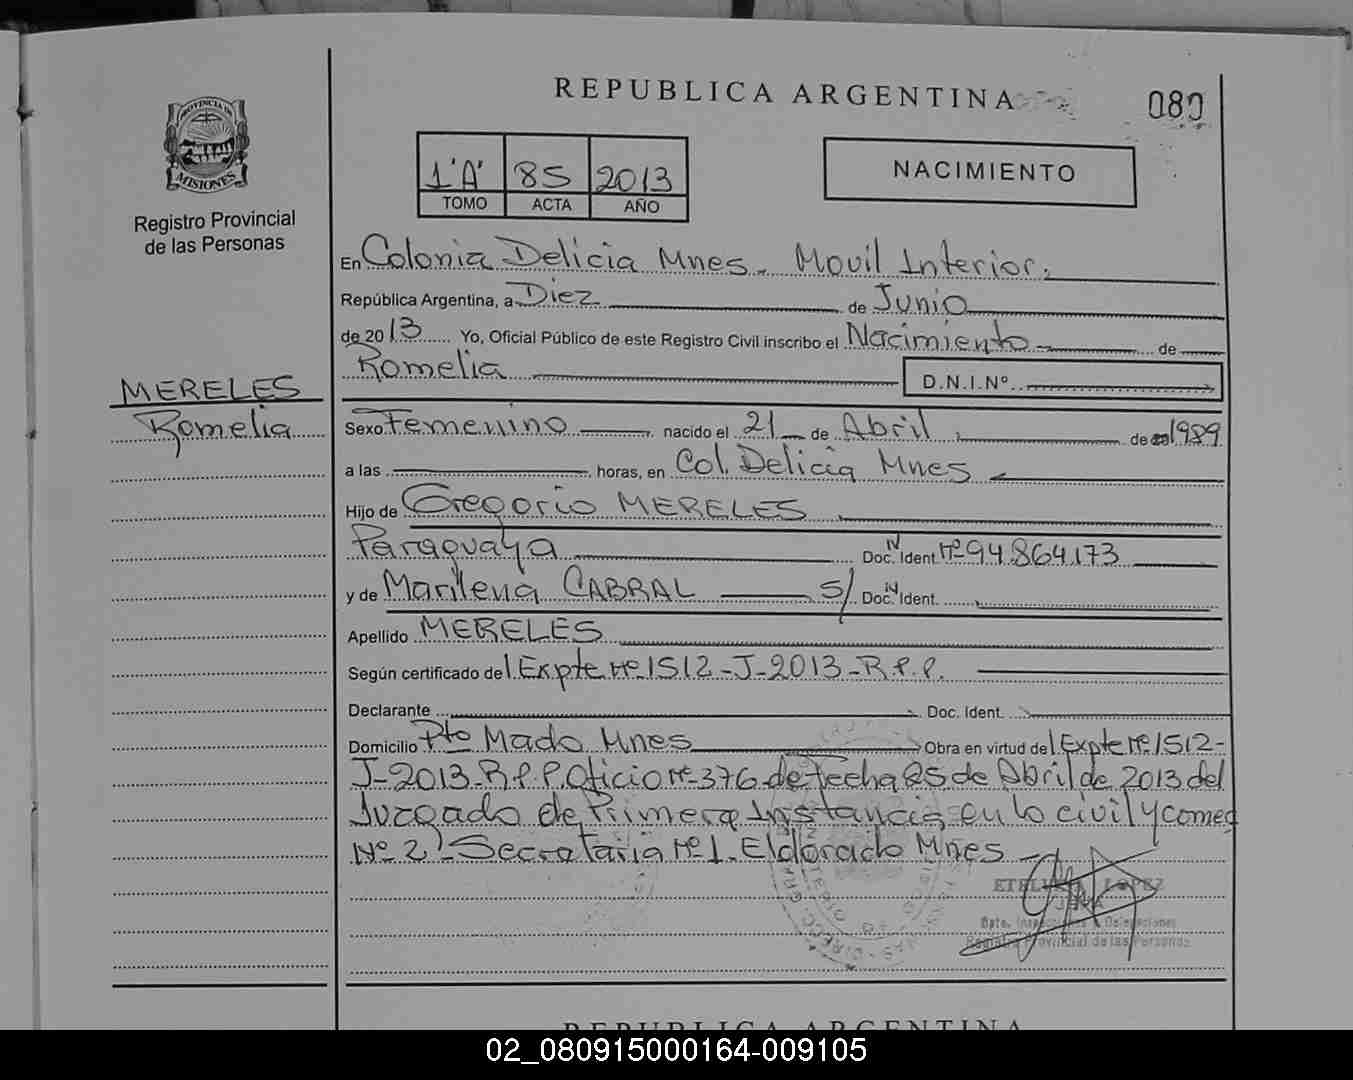 REPUBLICA ARGENTINA
080
PROVINCIA DE
MISIONES
Registro Provincial
de las Personas
1'A' 85 2013
TOMO ACTA AÑO
NACIMIENTO
En Colonia Delicia Mnes. Movil Interior.
República Argentina, a Diez de Junio
de 2013 Yo, Oficial Público de este Registro Civil inscribo el Nacimiento de
Romelia D.N.I.Nº
MERELES
Romelia
Sexo Femenino nacido el 21 de Abril de 1989
a las horas, en Col. Delicia Mnes
Hijo de Gregorio MERELES
Paraguaya Doc. Ident. Nº 94.864.173
y de Marilena CABRAL S/ Doc. Ident.
Apellido MERELES
Según certificado del Expte Nº 1512-J-2013-R.P.P.
Declarante Doc. Ident.
Domicilio Pto Mado Mnes Obra en virtud del Expte Nº 1512-
J-2013-R.P.P. Oficio Nº 376 de fecha 25 de Abril de 2013 del
Juzgado de Primera Instancia en lo civil y comec
Nº 2 - Secretaria Nº 1. Eldorado Mnes
LOPEZ
Registro Provincial de las Personas
REPUBLICA ARGENTINA
02_080915000164-009105